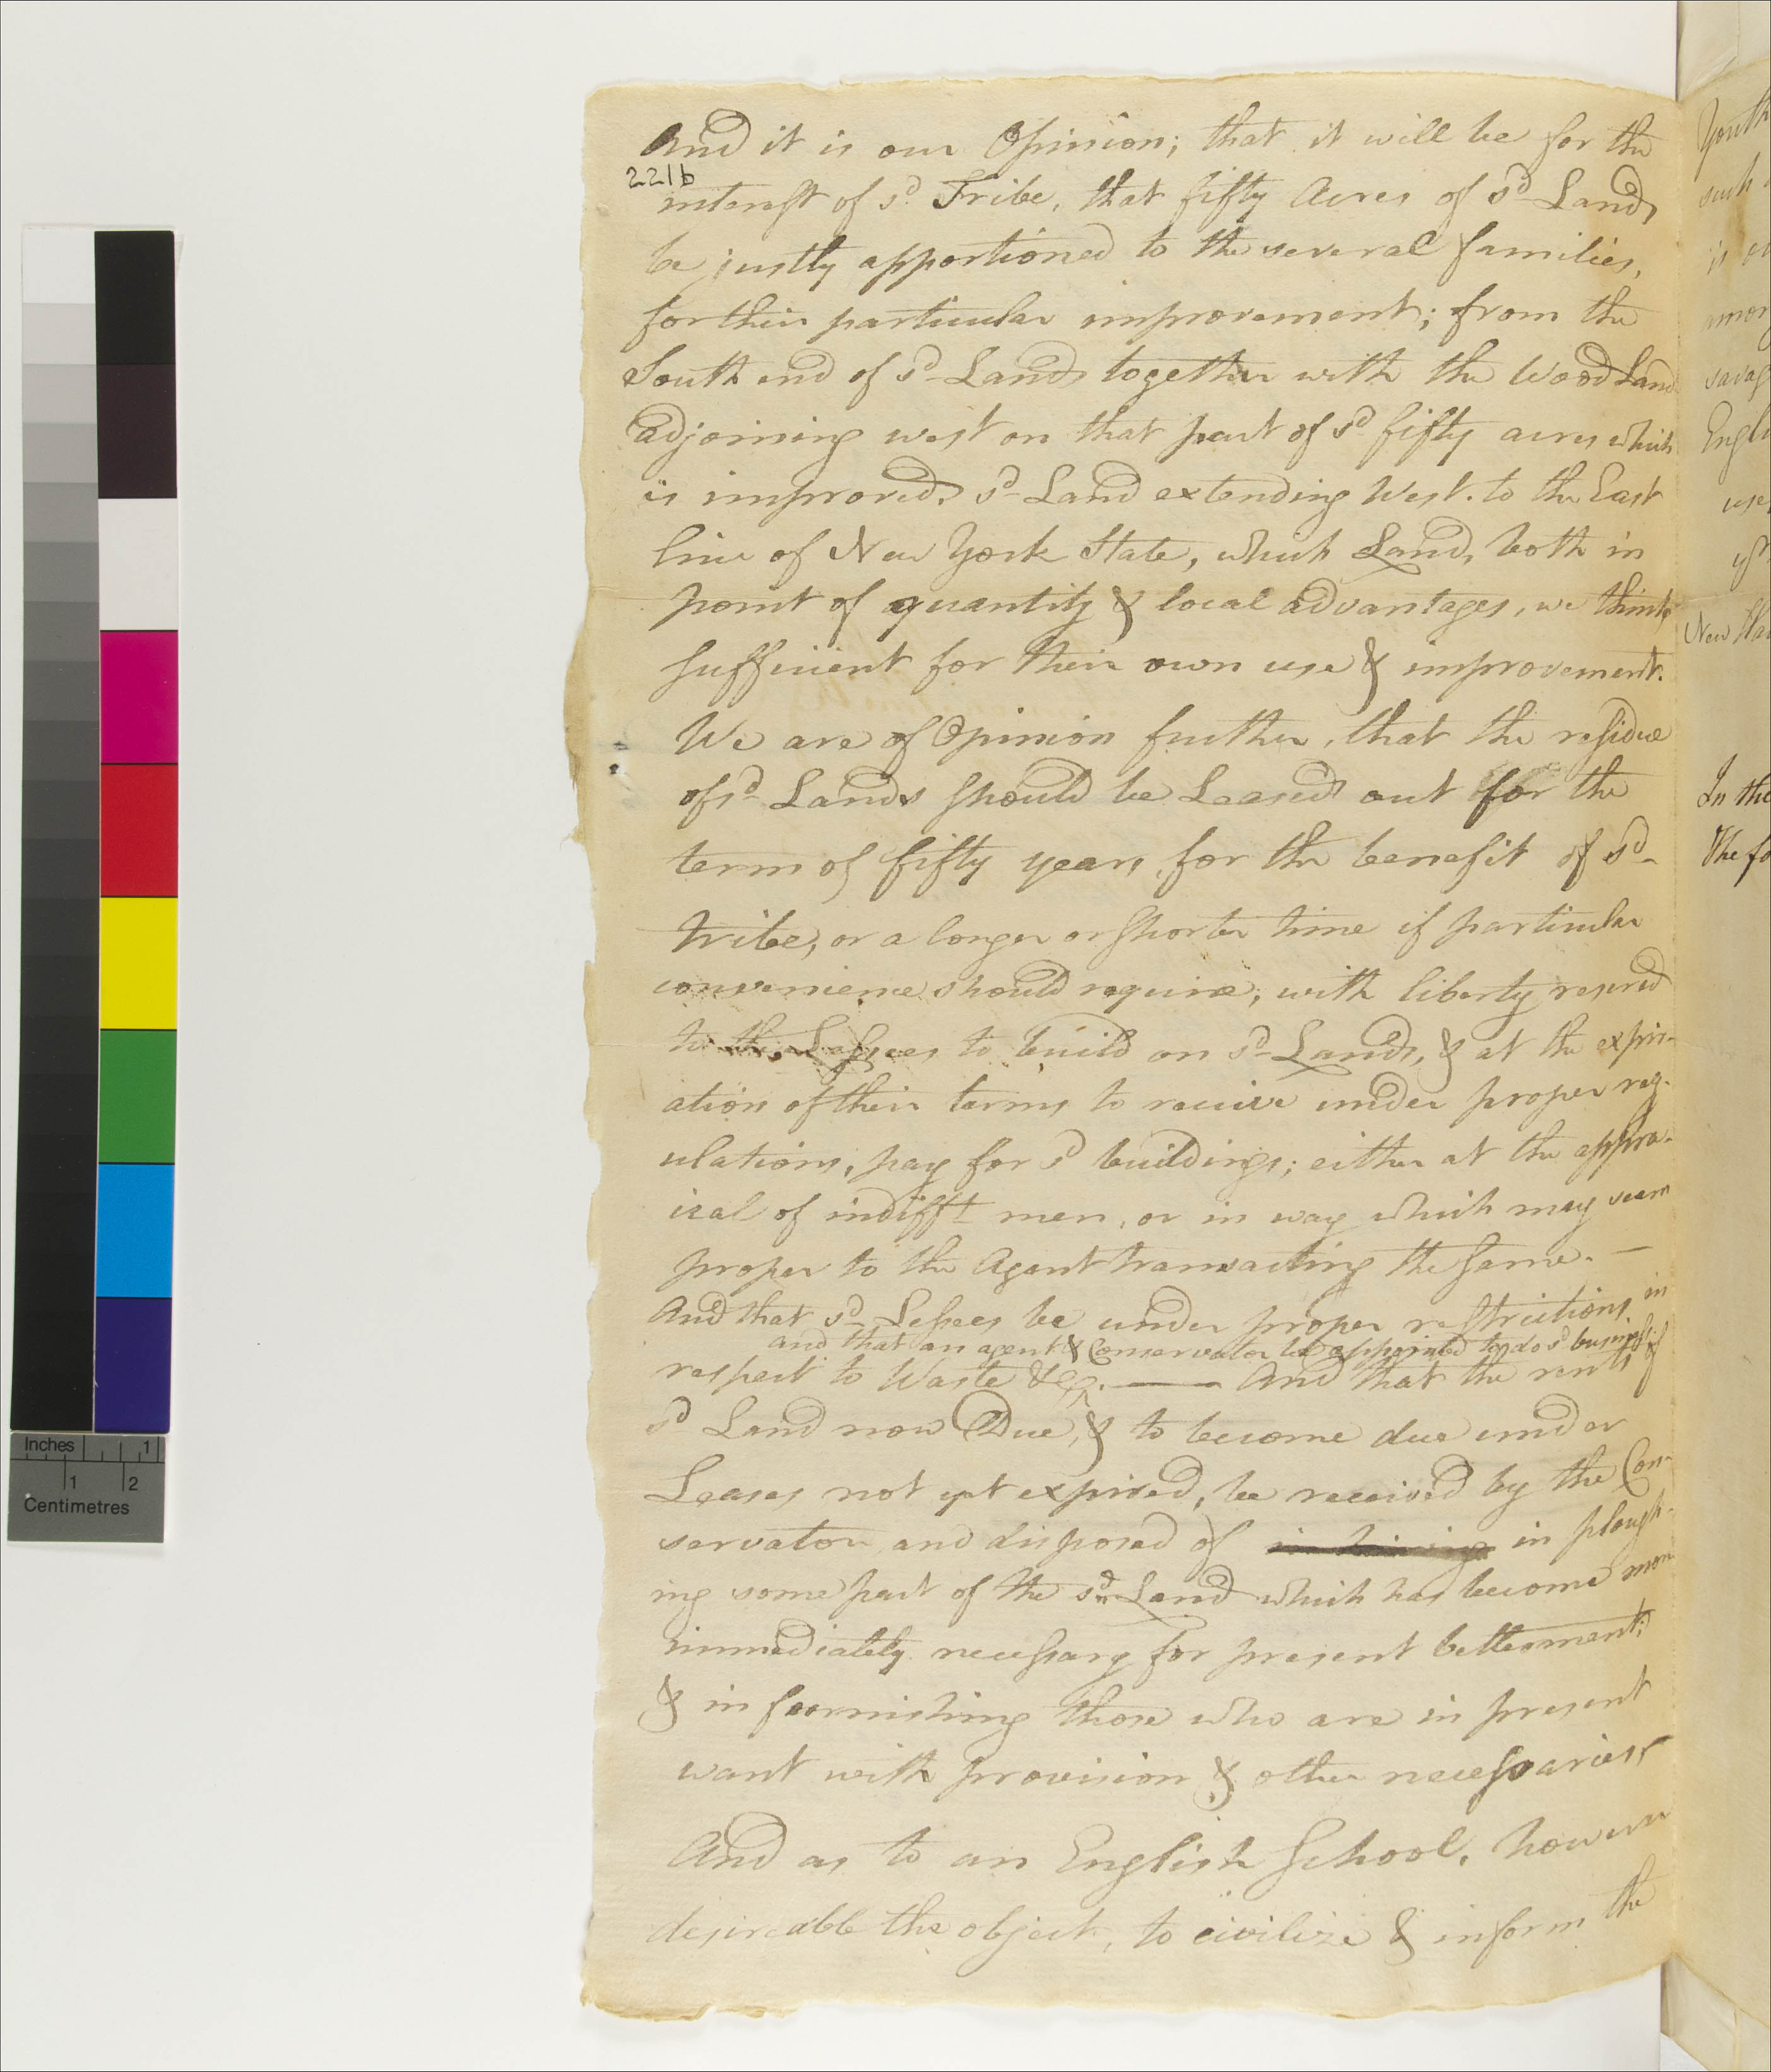 And it is our Opinion; that it will be for the
221b
interest of sd Tribe, that fifty Acres of sd Land,
be justly apportioned to the several families,
for their particular improvement; from the
South end of sd Land, together with the Wood Land
adjoining west on that part of sd fifty acres which
is improved, sd Land extending West to the East
line of New York State, which Land, both in
point of quantity & local advantages, we think
sufficient for their own use & improvement.
We are of Opinion further, that the residue
of sd Lands should be Leased out for the
term of fifty years, for the benefit of sd
tribe, or a longer or shorter time if particular
convenience should require, with liberty reserved
to the Lessees to build on sd Lands, & at the expir-
ation of their terms to receive under proper reg-
ulations, pay for sd buildings; either at the appra-
isal of indifft men, or in way which may seem
proper to the Agent transacting the same. —
And that sd Lessees be under proper restrictions in
and that an agent & Conservator be appointed to do sd business
respect to Waste &c. — And that the rents of
sd Land now Due, & to become due under
Leases not yet expired, be received by the Con-
servator and disposed of in plough-
ing some part of the sd Land which has become more
immediately necessary for present betterment;
& in furnishing those who are in present
want with provision & other necessaries
And as to an English School, however
desireable the object, to civilize & inform the
Youth
such
is
among
savag
Engli
use
New Hav
In the
The fo
Inches 1
1 2
Centimetres